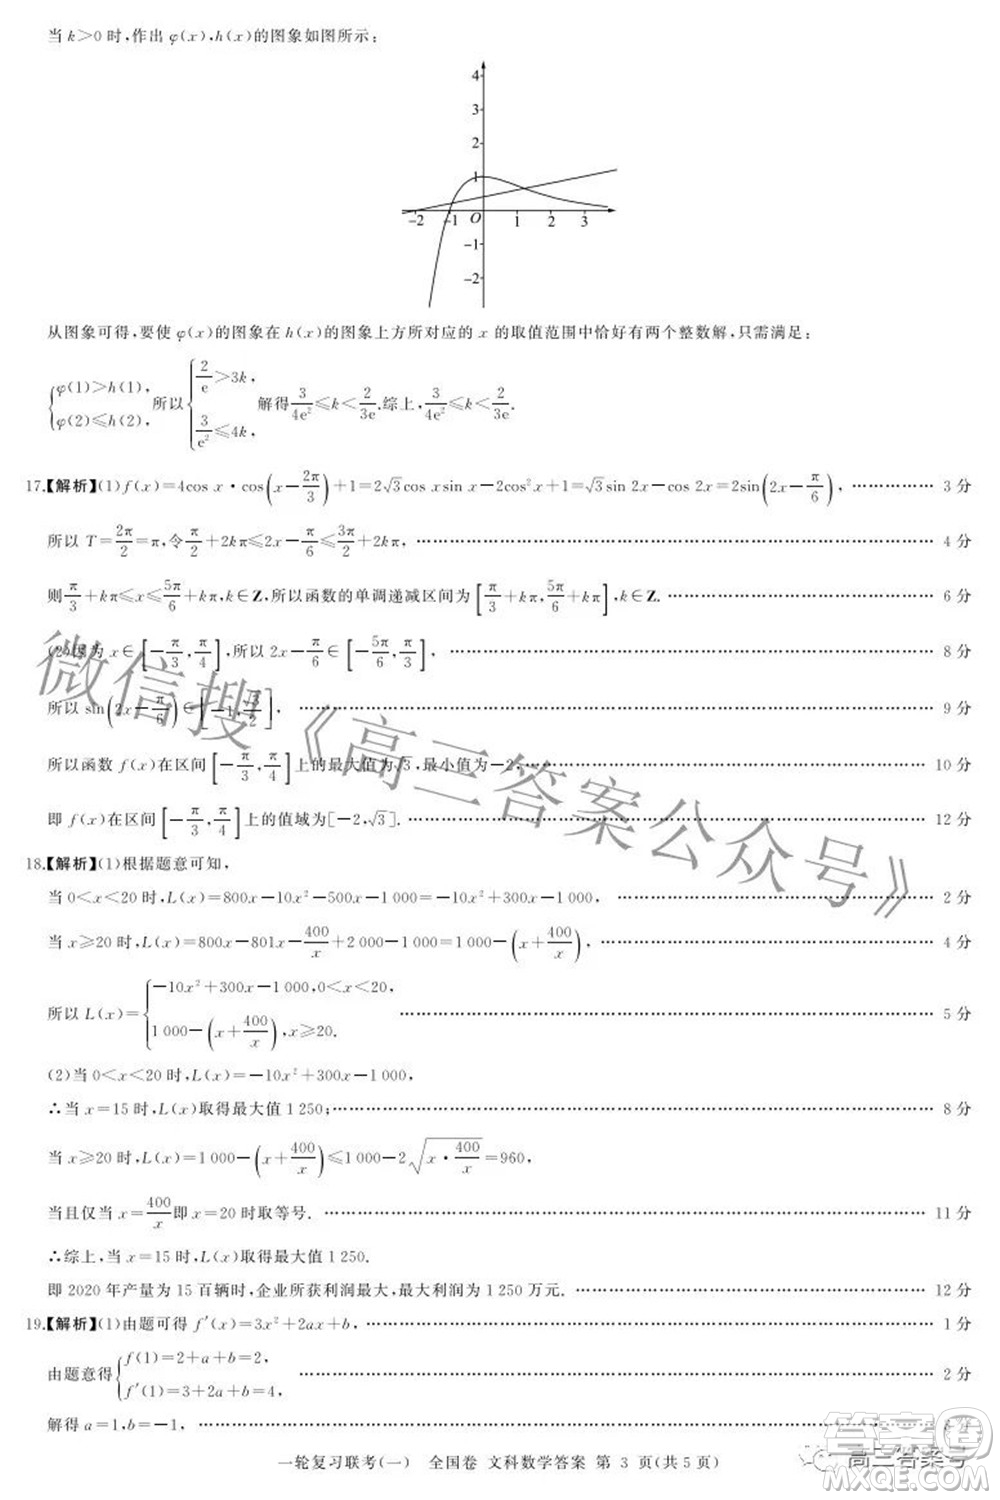 当 k>0 时,作出 φ(x),h(x)的图象如图所示:
4
3
2
1
-2 -1 O 1 2 3
-1
-2
从图象可得,要使 φ(x)的图象在 h(x)的图象上方所对应的 x 的取值范围中恰好有两个整数解,只需满足:
{φ(1)>h(1), φ(2)≤h(2), 所以 {2/e>3k, 3/e²≤4k, 解得 3/4e²≤k<2/3e.综上,3/4e²≤k<2/3e.
17.【解析】(1)f(x)=4cos x·cos(x-2π/3)+1=2√3cos xsin x-2cos²x+1=√3sin 2x-cos 2x=2sin(2x-π/6), …………… 3 分
所以 T=2π/2=π,令π/2+2kπ≤2x-π/6≤3π/2+2kπ, …………… 4 分
则π/3+kπ≤x≤5π/6+kπ,k∈Z,所以函数的单调递减区间为[π/3+kπ,5π/6+kπ],k∈Z. …………… 6 分
(2)因为 x∈[-π/3,π/4],所以 2x-π/6∈[-5π/6,π/3], …………… 8 分
所以 sin(2x-π/6)∈[-1,√3/2], …………… 9 分
所以函数 f(x)在区间[-π/3,π/4]上的最大值为√3,最小值为-2, …………… 10 分
即 f(x)在区间[-π/3,π/4]上的值域为[-2,√3]. …………… 12 分
18.【解析】(1)根据题意可知,
当 0<x<20 时,L(x)=800x-10x²-500x-1 000=-10x²+300x-1 000, …………… 2 分
当 x≥20 时,L(x)=800x-801x-400/x+2 000-1 000=1 000-(x+400/x), …………… 4 分
所以 L(x)={-10x²+300x-1 000,0<x<20, 1 000-(x+400/x),x≥20. …………… 5 分
(2)当 0<x<20 时,L(x)=-10x²+300x-1 000,
∴当 x=15 时,L(x)取得最大值 1 250; …………… 8 分
当 x≥20 时,L(x)=1 000-(x+400/x)≤1 000-2√(x·400/x)=960,
当且仅当 x=400/x即 x=20 时取等号. …………… 11 分
∴综上,当 x=15 时,L(x)取得最大值 1 250.
即 2020 年产量为 15 百辆时,企业所获利润最大,最大利润为 1 250 万元. …………… 12 分
19.【解析】(1)由题可得 f′(x)=3x²+2ax+b, …………… 1 分
由题意得{f(1)=2+a+b=2, f′(1)=3+2a+b=4, …………… 2 分
解得 a=1,b=-1, …………… 3 分
一轮复习联考(一) 全国卷 文科数学答案 第 3 页(共 5 页)
微信搜《高三答案公众号》
高三答案号
答案圈
MXQE.COM